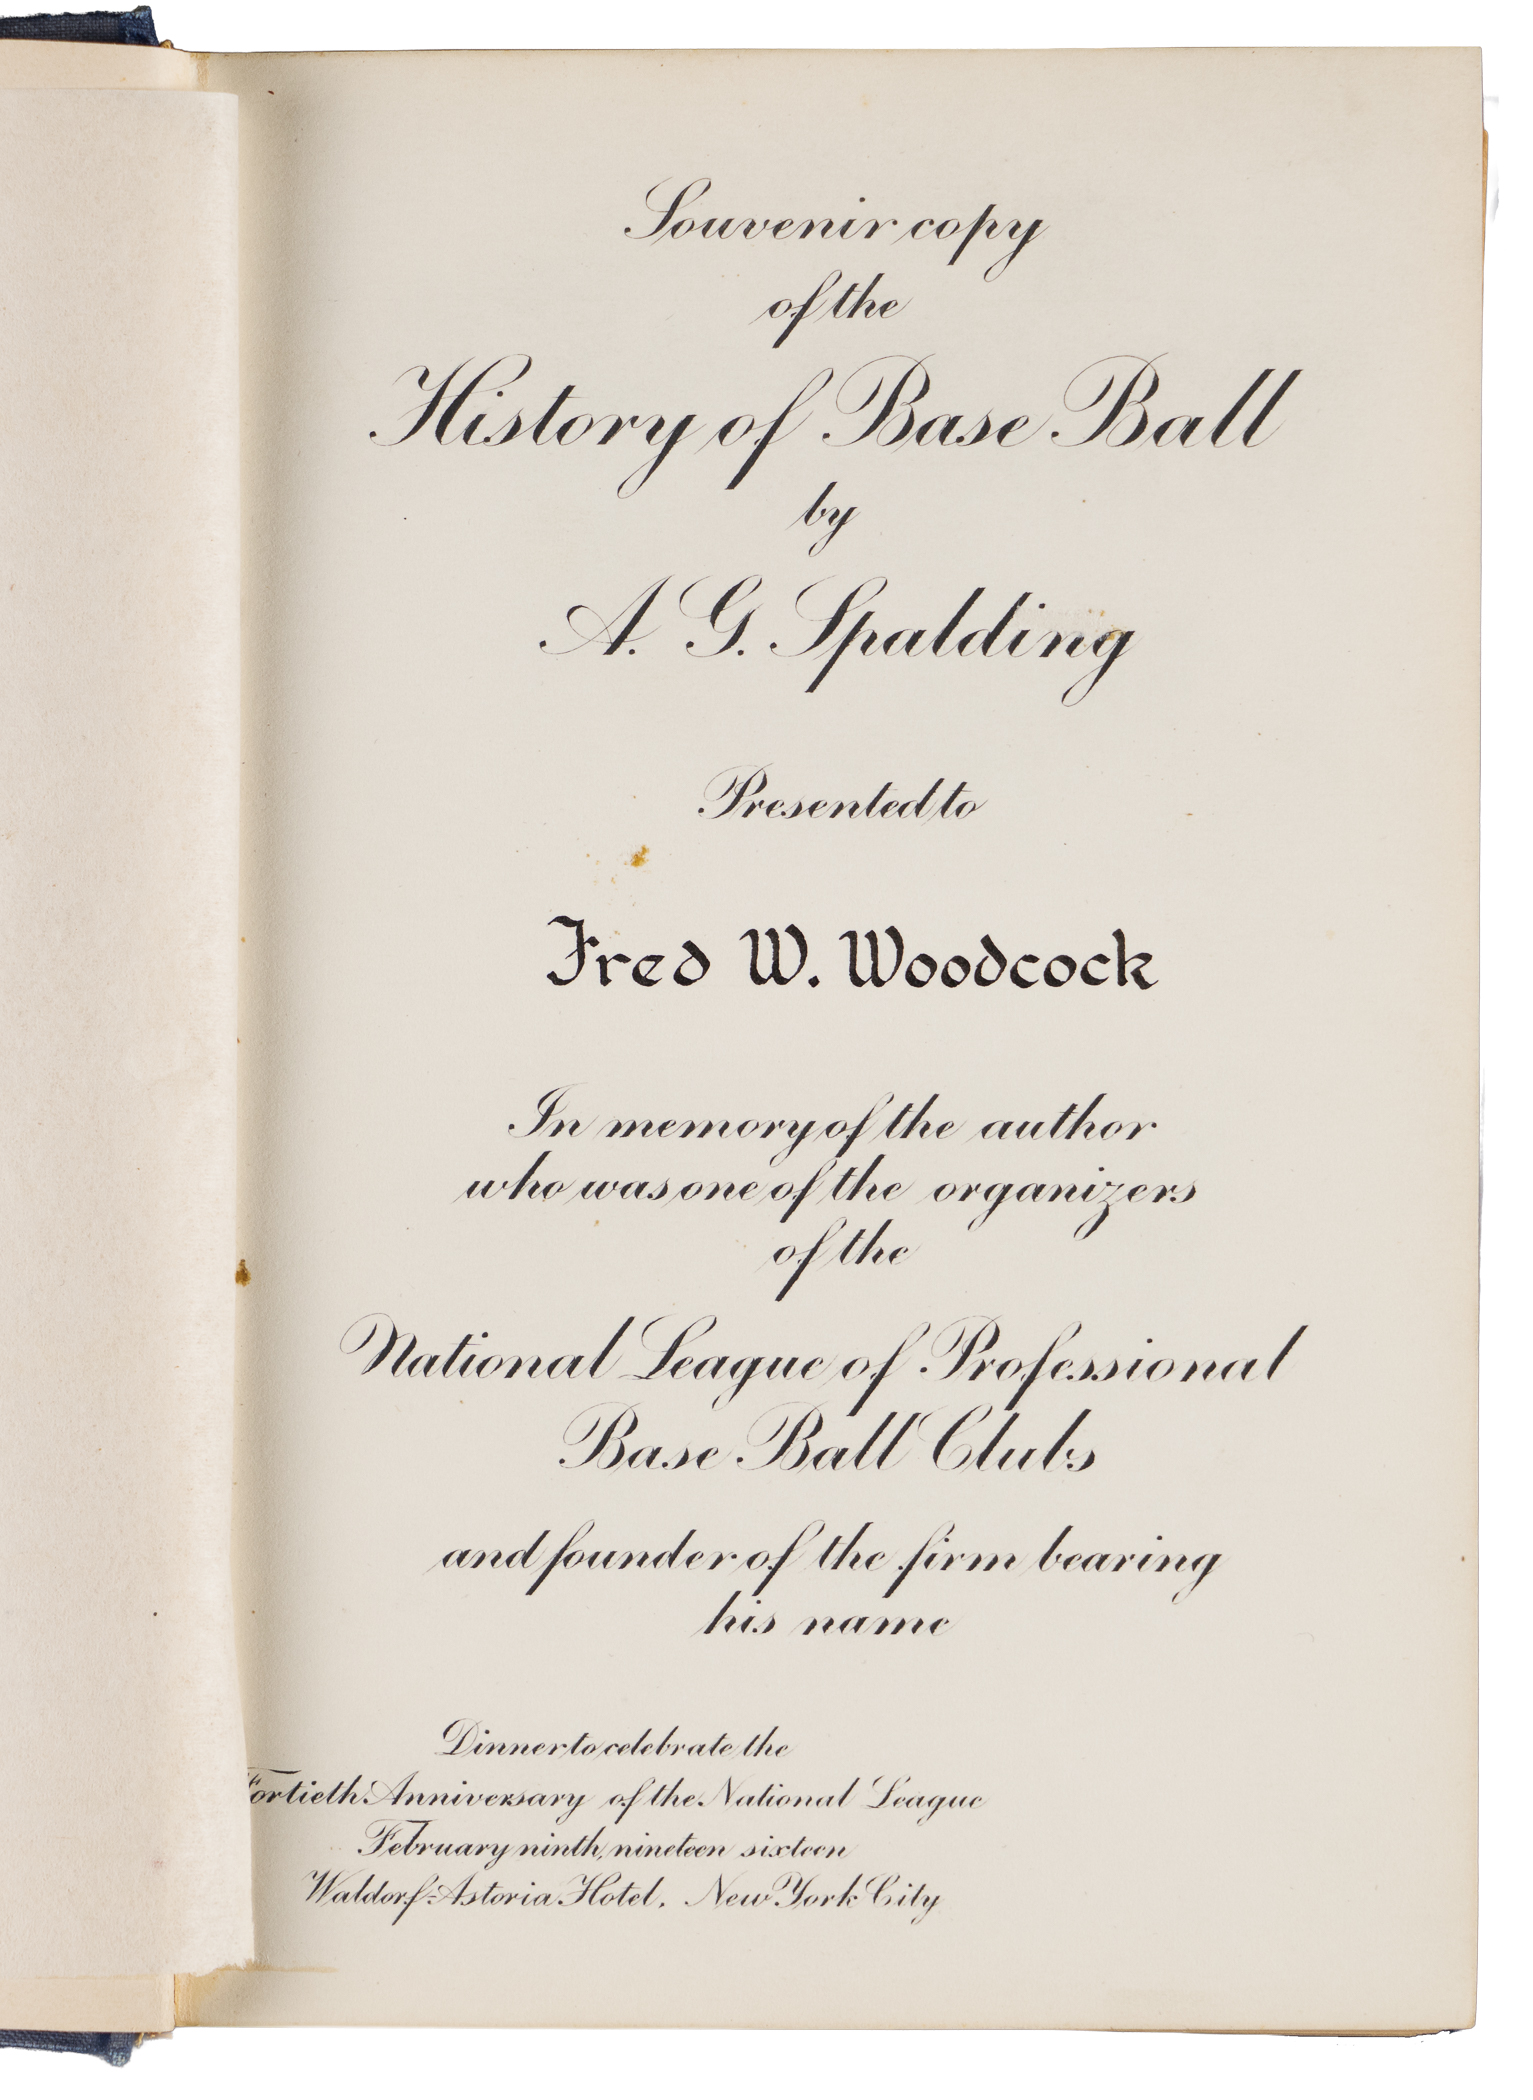 Souvenir copy
of the
History of Base Ball
by
A. G. Spalding
Presented to
Fred W. Woodcock
In memory of the author
who was one of the organizers
of the
National League of Professional
Base Ball Clubs
and founder of the firm bearing
his name
Dinner to celebrate the
Fortieth Anniversary of the National League
February ninth, nineteen sixteen
Waldorf-Astoria Hotel, New York City